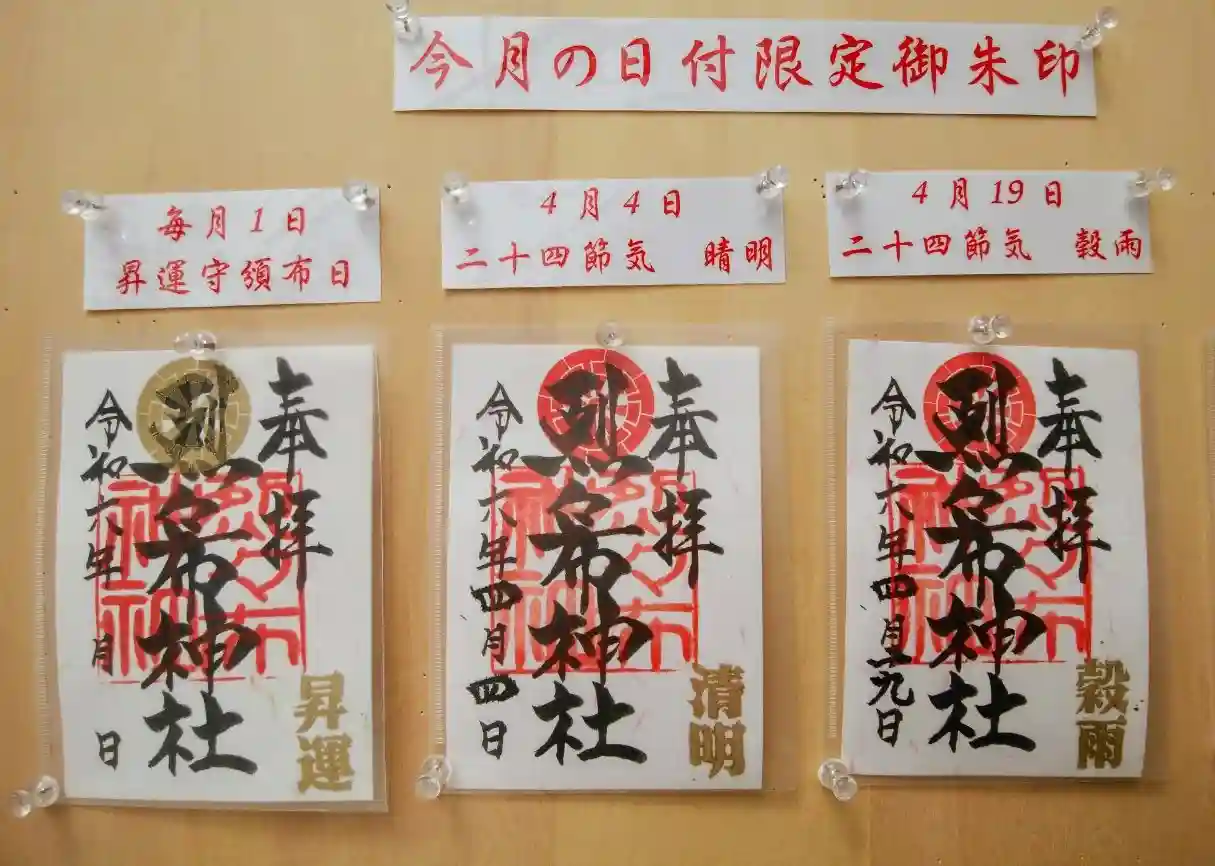 今月の日付限定御朱印
毎月1日
昇運守頒布日
4月4日
二十四節気　晴明
4月19日
二十四節気　穀雨
奉拝
昇運
烈々布神社
令和六年　月　日
奉拝
清明
烈々布神社
令和六年四月四日
奉拝
穀雨
烈々布神社
令和六年四月十九日